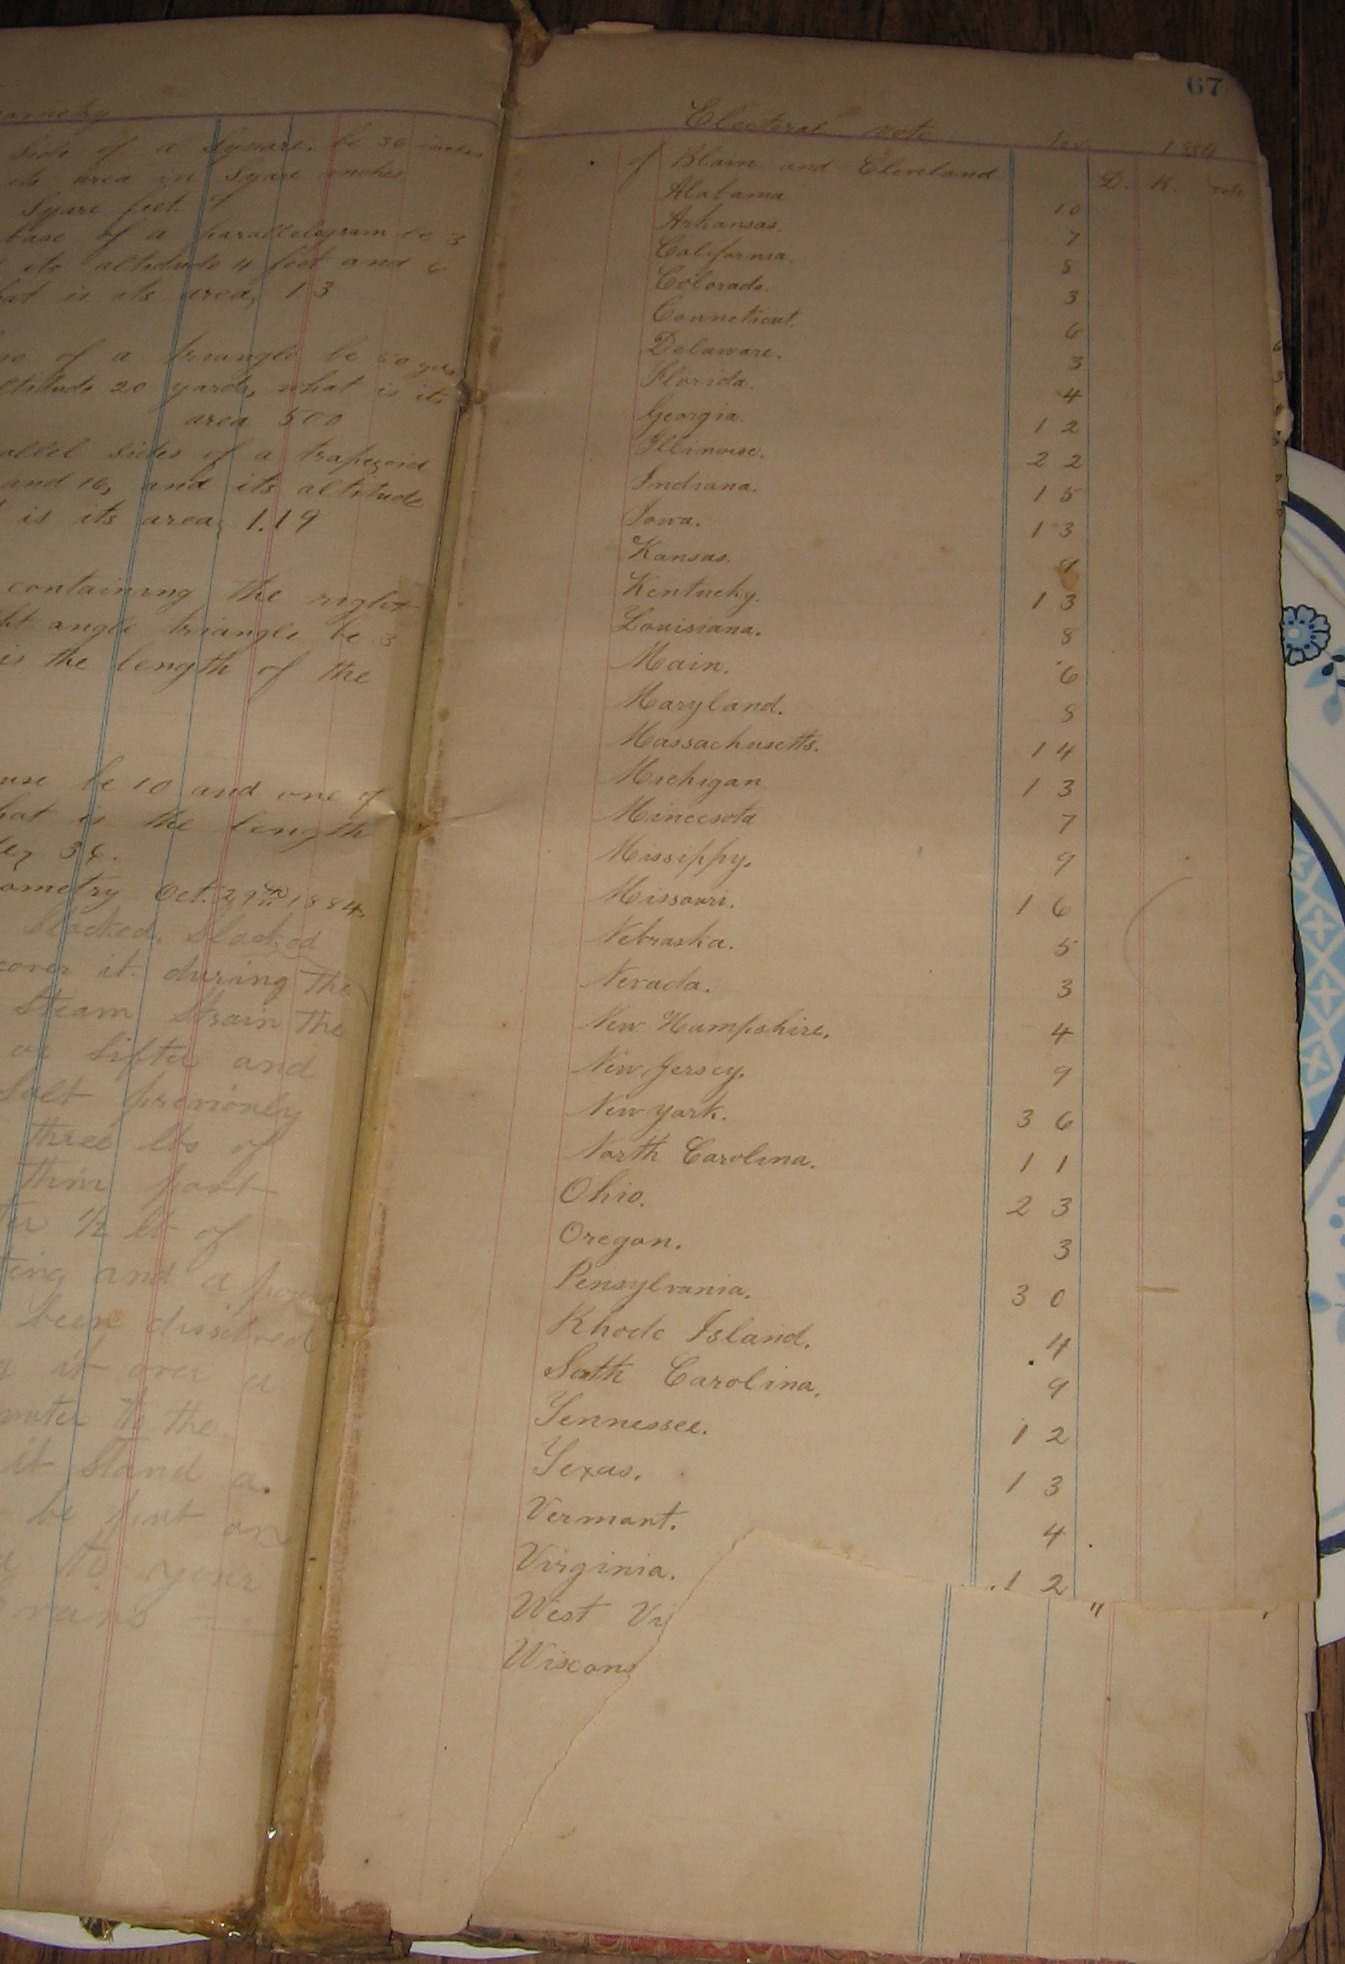 ometry
Side of a Squar. be 36 inches
its area in Sqare inches
Sqare feet. 9
base of a parallelogram be 3
its altitude 4 feet and 6
hat is its area, 13
se of a triangle be 50 yds,
ltitude 20 yards, what is its
area 500
allel sides of a trapezoid
and 16, and its altitude
is its area, 1.19
containing the right
ht angle triangle be 3
is the length of the
use be 10 and one of
hat is the length
36.
ometry Oct. 29th 1884.
Slacked, Slacked
cover it during the
Steam Strain the
or Sifter and
Salt previously
three lbs of
thin past
1/2 lb of
ting and a
been dissolved
it over a
water to the
it Stand a
be put on
to your
67
Electoral vote 1884
of Blain and Cleveland D. R. vote
Alabama 10
Arkansas. 7
California. 8
Colorado. 3
Conneticut. 6
Delaware. 3
Florida. 4
Georgia. 12
Illinoise. 22
Indiana. 15
Iowa. 13
Kansas. 9
Kentucky. 13
Louisiana. 8
Main. 6
Maryland. 8
Massachusetts. 14
Michigan 13
Mineesota 7
Missippy. 9
Missouri. 16
Nebraska. 5
Nevada. 3
New Hampshire. 4
New Jersey. 9
New york. 36
North Carolina. 11
Ohio. 23
Oregon. 3
Pensylvania. 30
Rhode Island. 4
Sath Carolina. 9
Tennessee. 12
Texas. 13
Vermont. 4
Virginia. 12
West Vi
Wiscons